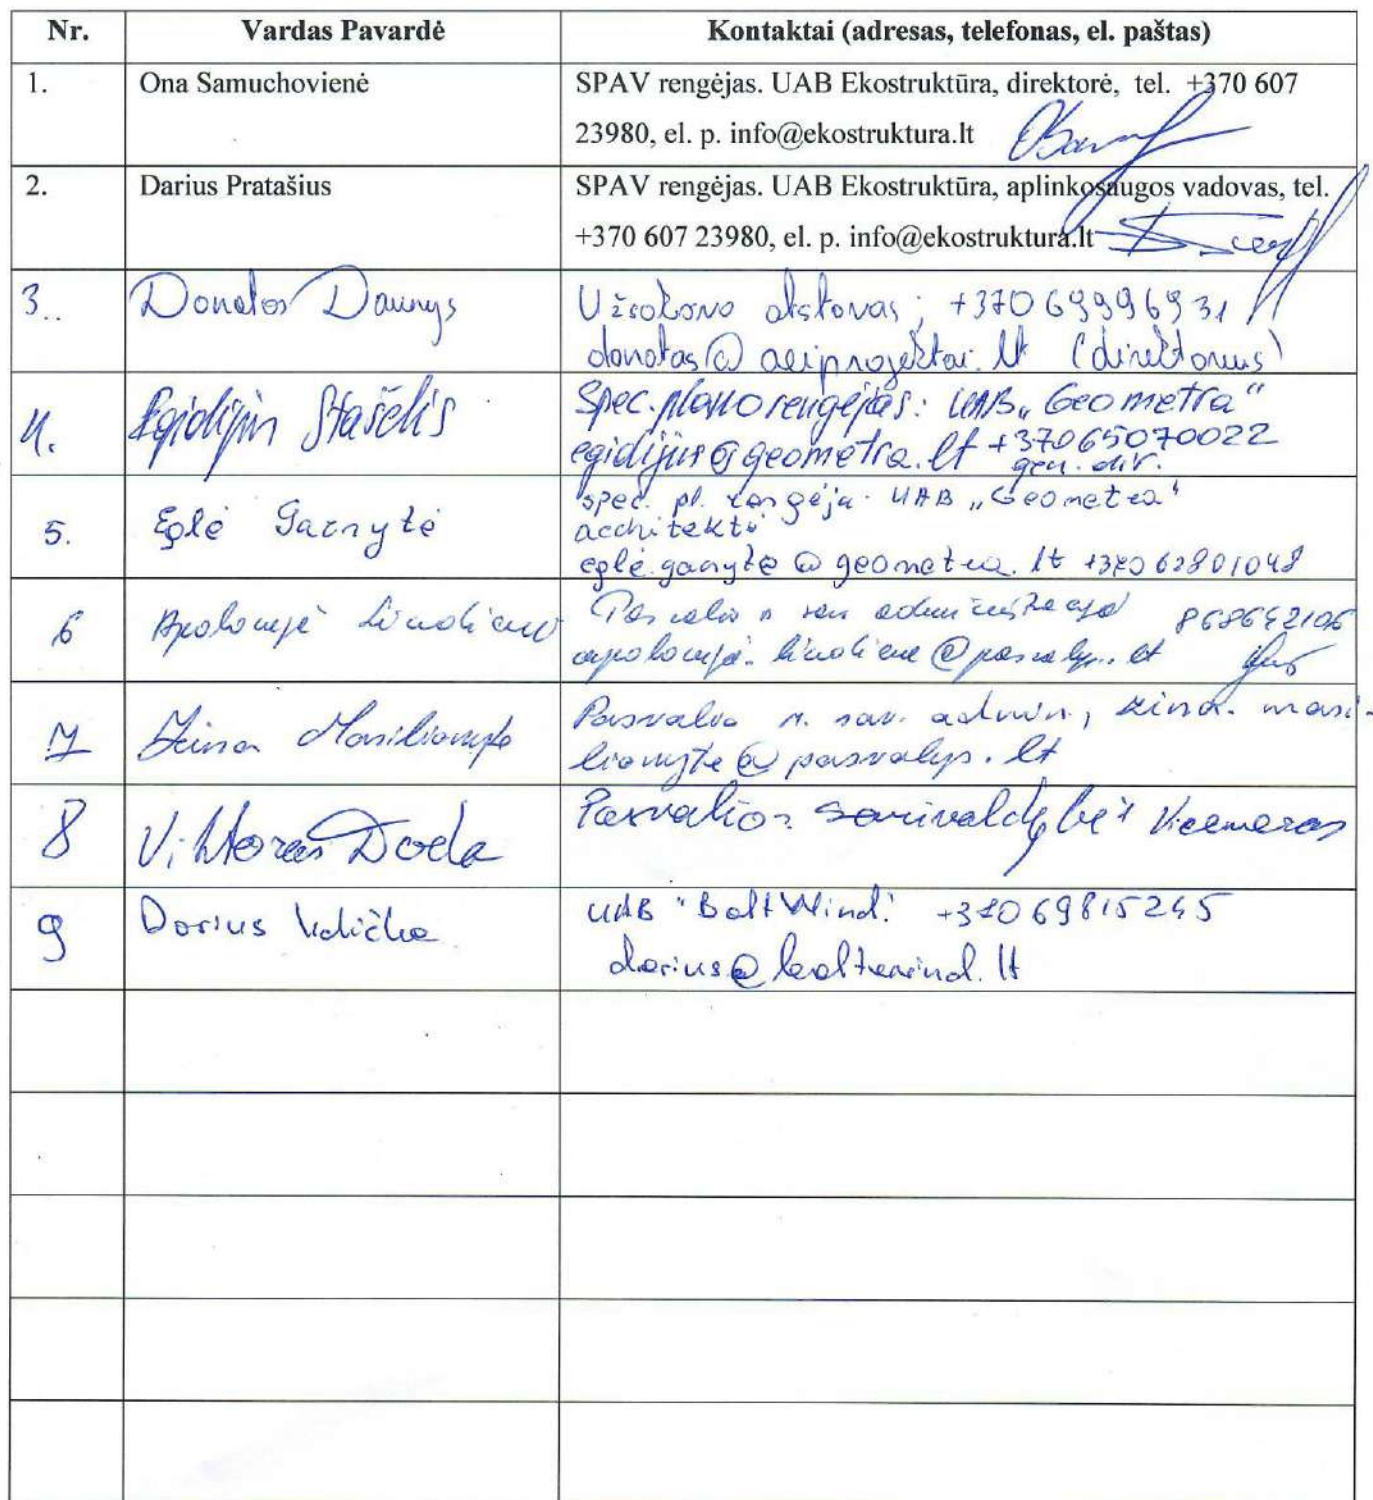 Nr. Vardas Pavardė Kontaktai (adresas, telefonas, el. paštas)
1. Ona Samuchovienė SPAV rengėjas. UAB Ekostruktūra, direktorė, tel. +370 607
23980, el. p. info@ekostruktura.lt
2. Darius Pratašius SPAV rengėjas. UAB Ekostruktūra, aplinkosaugos vadovas, tel.
+370 607 23980, el. p. info@ekostruktura.lt
3.. Donatas Daunys Užsakovo atstovas; +370 69996931
donatas@aeiprojektai.lt (direktorius)
4. Egidijus Stašelis Spec. plano rengėjas: UAB „Geometra“
egidijus@geometra.lt +37065070022
gen. dir.
5. Eglė Garnytė spec. pl. rengėja UAB „Geometra“
architektė
egle.garnyte@geometra.lt +370 62801048
6 Apolonija 868642106
@pasvalys.lt
7 Zina Masilionytė Pasvalio r. sav. admin., zina.masi-
lionyte@pasvalys.lt
8 Viktoras Pasvalio savivaldybės Vicemeras
9 Darius UAB "BaltWind" +370 69815245
darius@baltwind.lt